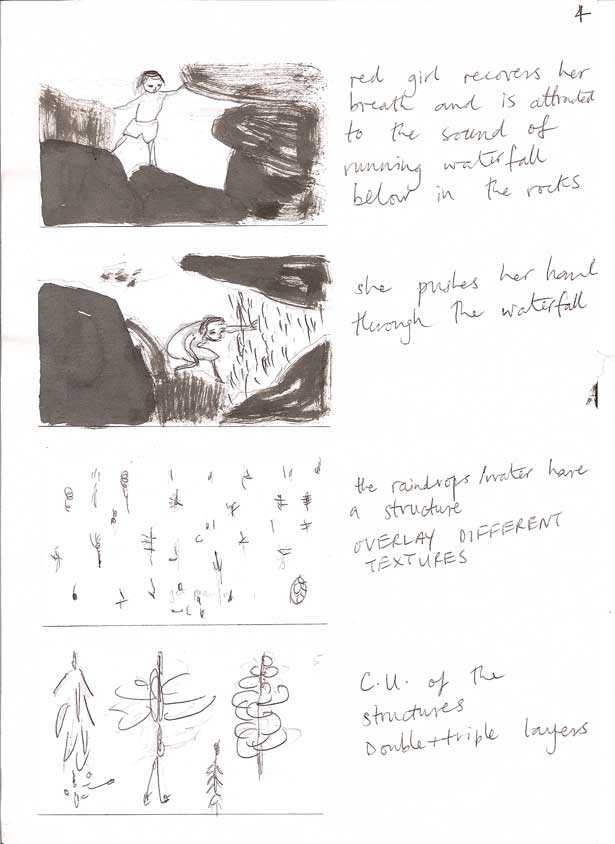 4
red girl recovers her
breath and is attracted
to the sound of
running waterfall
below in the rocks
she pushes her hand
through the waterfall
the raindrops/water have
a structure
OVERLAY DIFFERENT
TEXTURES
C.U. of the
structures
Double+triple layers